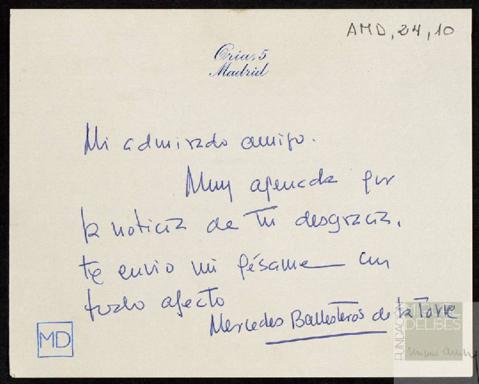 AMD, 24, 10
Oria, 5
Madrid
Mi admirado amigo.
Muy apenada por
la noticia de tu desgracia,
te envio mi pésame con
todo afecto
Mercedes Ballesteros de la Torre
MD
FUNDACIÓN
MIGUEL
DELIBES